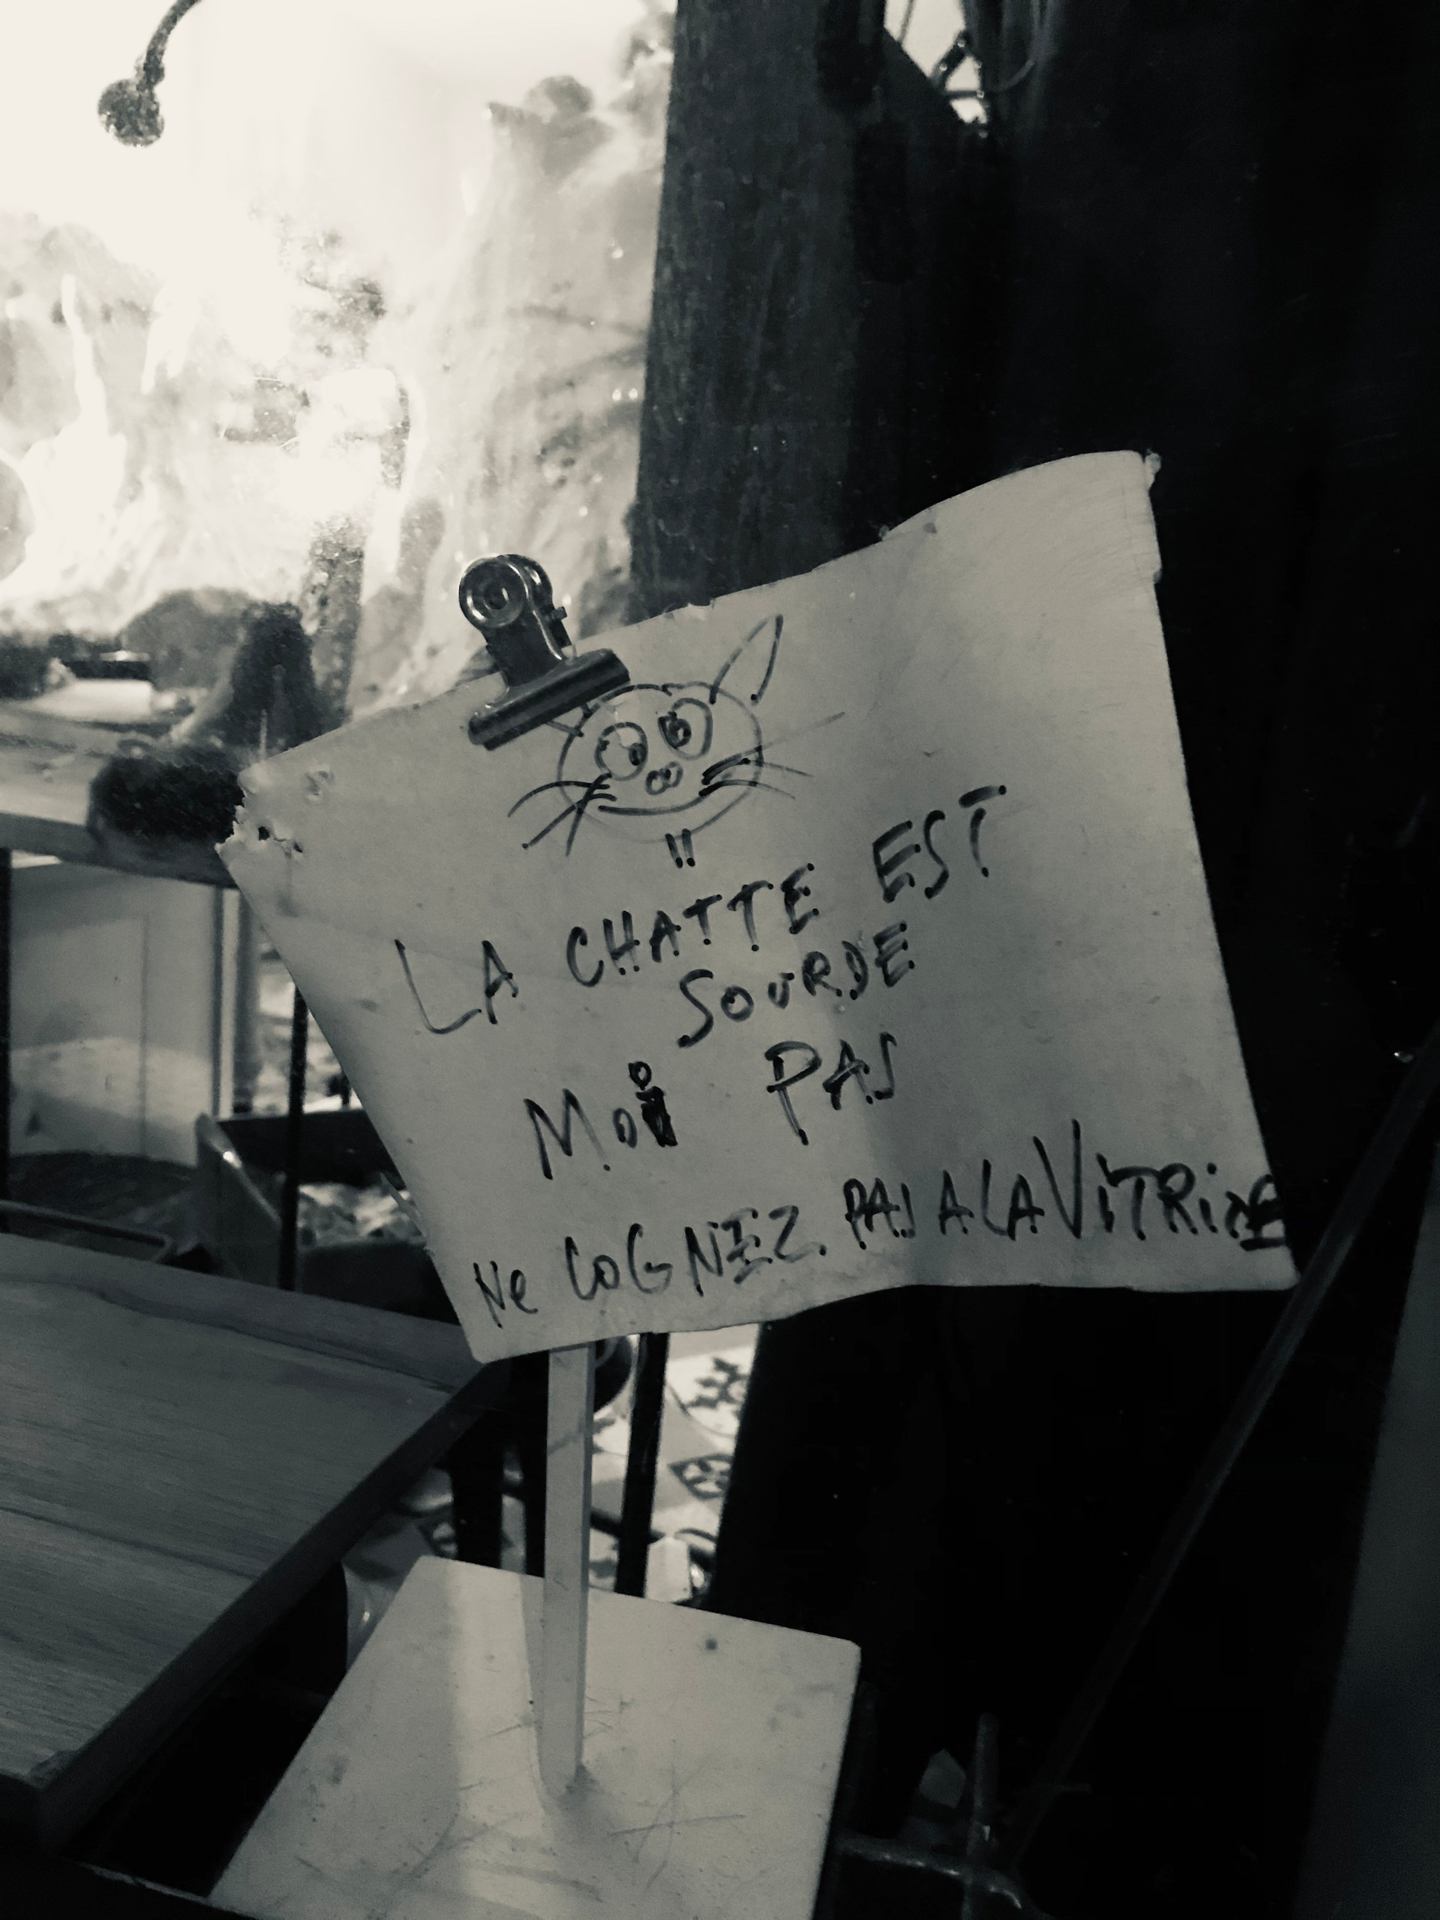 LA CHATTE EST
SOURDE
Moi PAS
Ne COGNEZ PAS A LA ViTRiNE